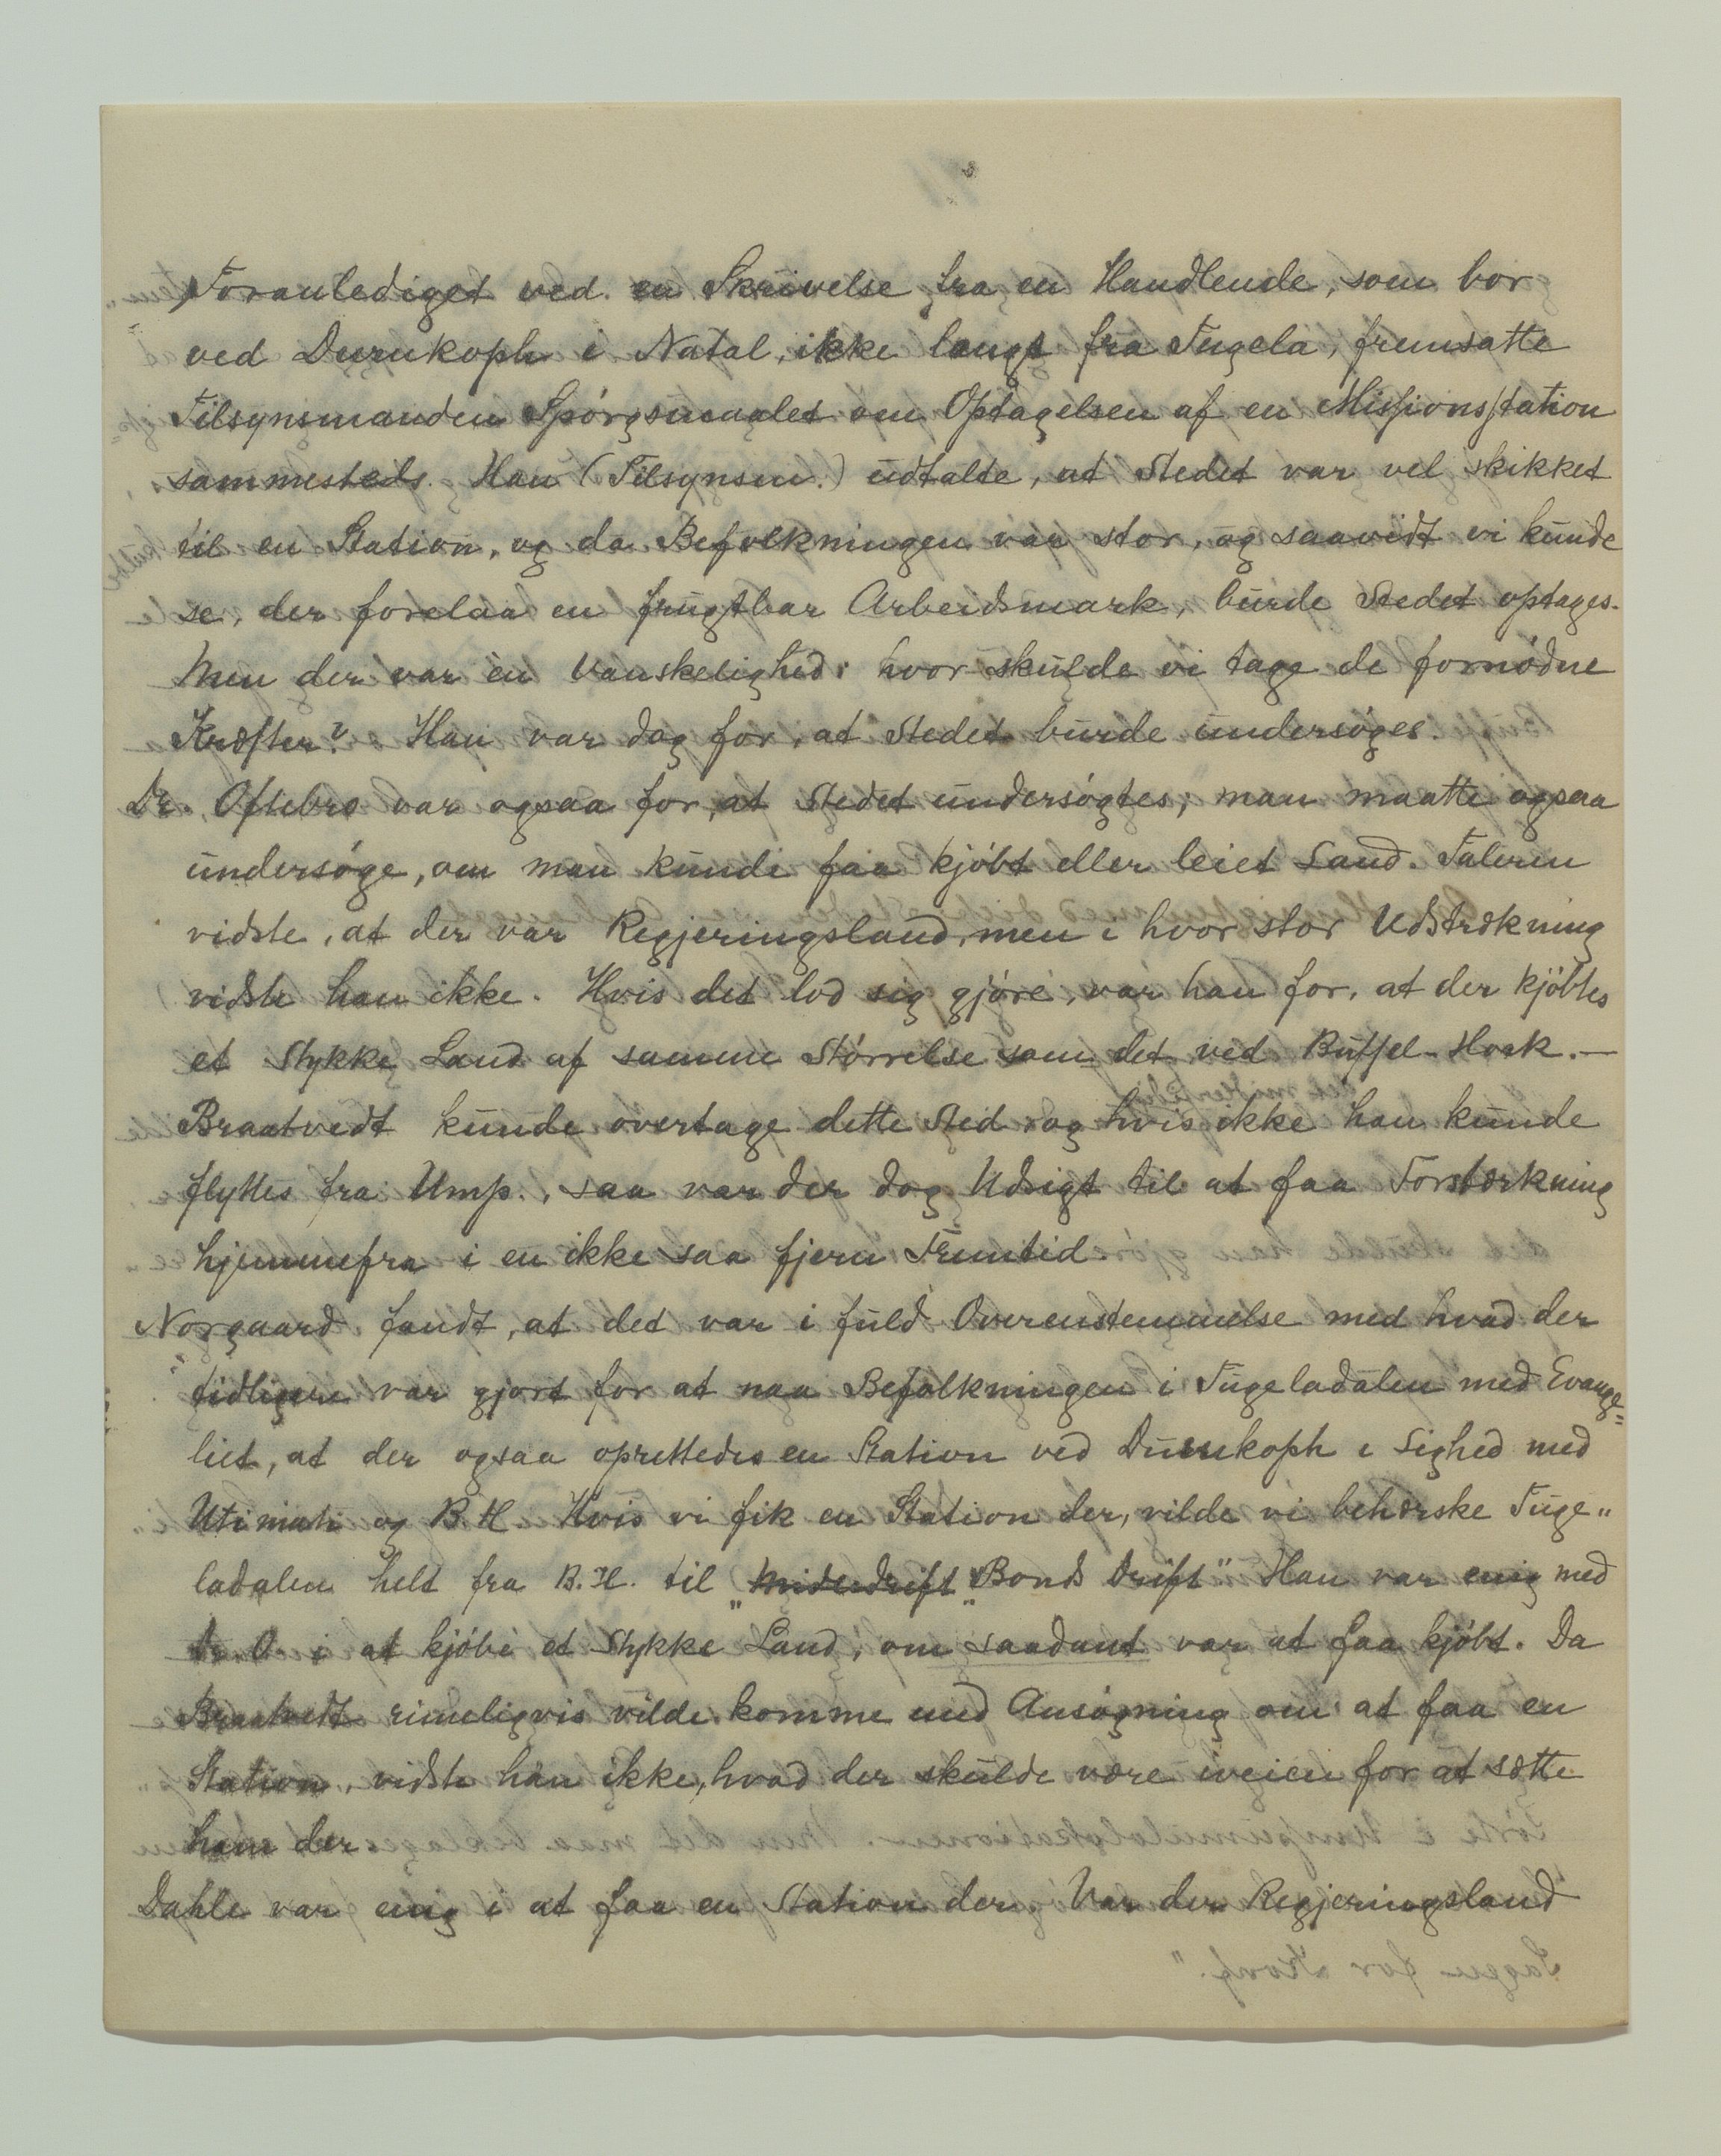 Foranlediget ved en Skrivelse fra en Handlende, som bor
ved Durnkoph i Natal, ikke langt fra Tugela, fremsatte
Tilsynsmanden Spórgsmaalet om Optagelsen af en Missionsstation
sammesteds. Han (Tilsynsm.) udtalte, at Stedet var vel skikket
til en Station, og da Befolkningen var stor, og saavidt vi kunde
se, der forelaa en frugtbar Arbeidsmark, burde Stedet optages.
Men der var èn Vanskelighed: hvor skulde vi tage de fornódne
Kræfter? Han var dog for, at Stedet burde undersóges.
Dr. Oftebro var ogsaa for, at Stedet undersógtes; man maatte ogsaa
undersóge, om man kunde faa kjóbt eller leiet Land. Taleren
vidste, at der var Regjeringsland, men i hvor stor Udstrækning
vidste han ikke. Hvis det lod sig gjóre, var han for, at der kjóbtes
et Stykke Land af samme Stórrelse som det ved Buffel-Hoek.—
Braatvedt kunde overtage dette Sted, og hvis ikke han kunde
flyttes fra Ump., saa var der dog Udsigt til at faa Forstærkning
hjemmefra i en ikke saa fjern Fremtid.
Norgaard fandt, at det var i fuld Overenstemmelse med hvad der
tidligere var gjort for at naa Befolkningen i Tugeladalen med Evange=
liet, at der ogsaa oprettedes en Station ved Durnkoph i Lighed med
Utimati og B.H. Hvis vi fik en Station der, vilde vi beherske Tuge„
ladalen helt fra B.H. til „Middledrift„ Bonds Drift" Han var enig med
dr. O. i at kjóbe et Stykke Land, om saadant var at faa kjóbt. Da
Braatvedt rimeligvis vilde komme med Ansógning om at faa en
Station, vidste han ikke, hvad der skulde være iveien for at sætte
ham der.
Dahle var enig i at faa en Station der. Var der Regjeringsland